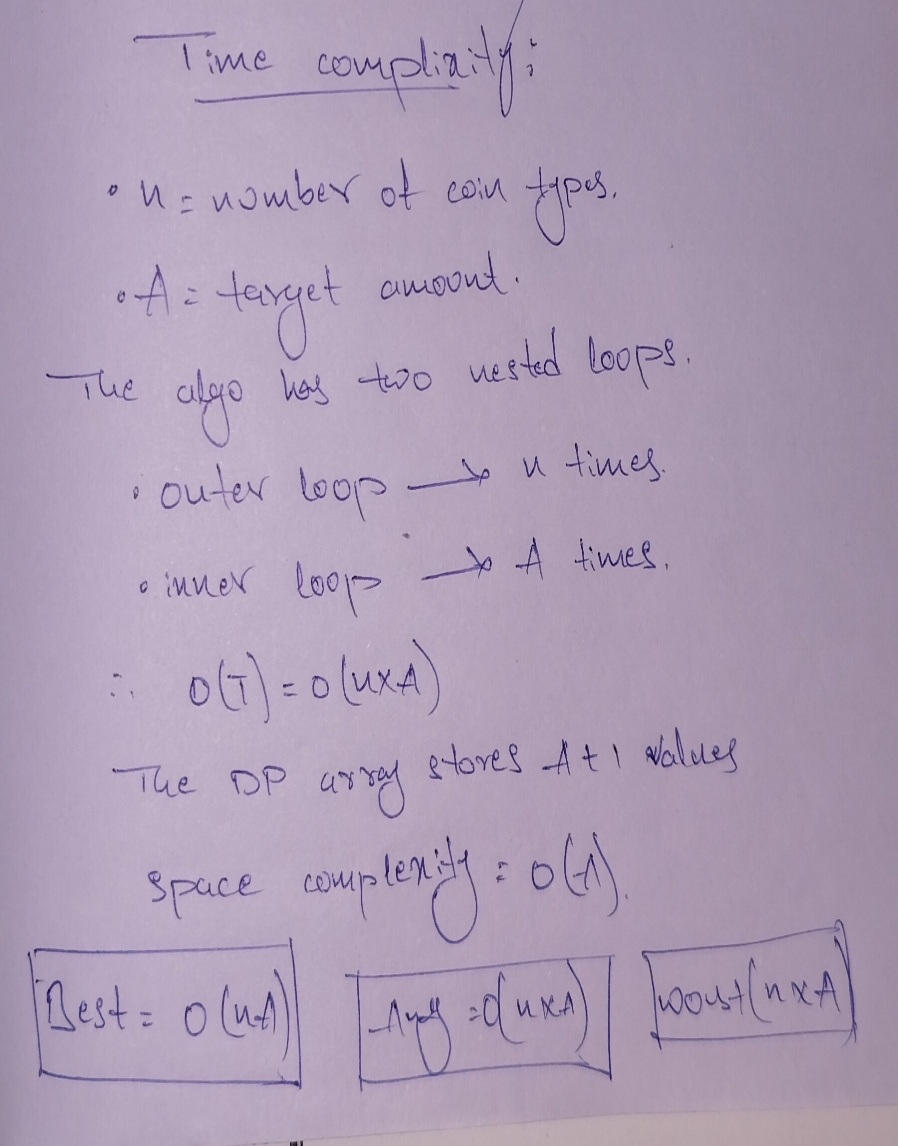 Time complixity:
• n = number of coin types.
• A = target amount.
The algo has two nested loops.
• outer loop → n times.
• inner loop → A times.
∴ O(T) = O(n×A)
The DP array stores A+1 values
space complexity = O(A).
Best = O(nA) Avg = O(n×A) Worst(n×A)